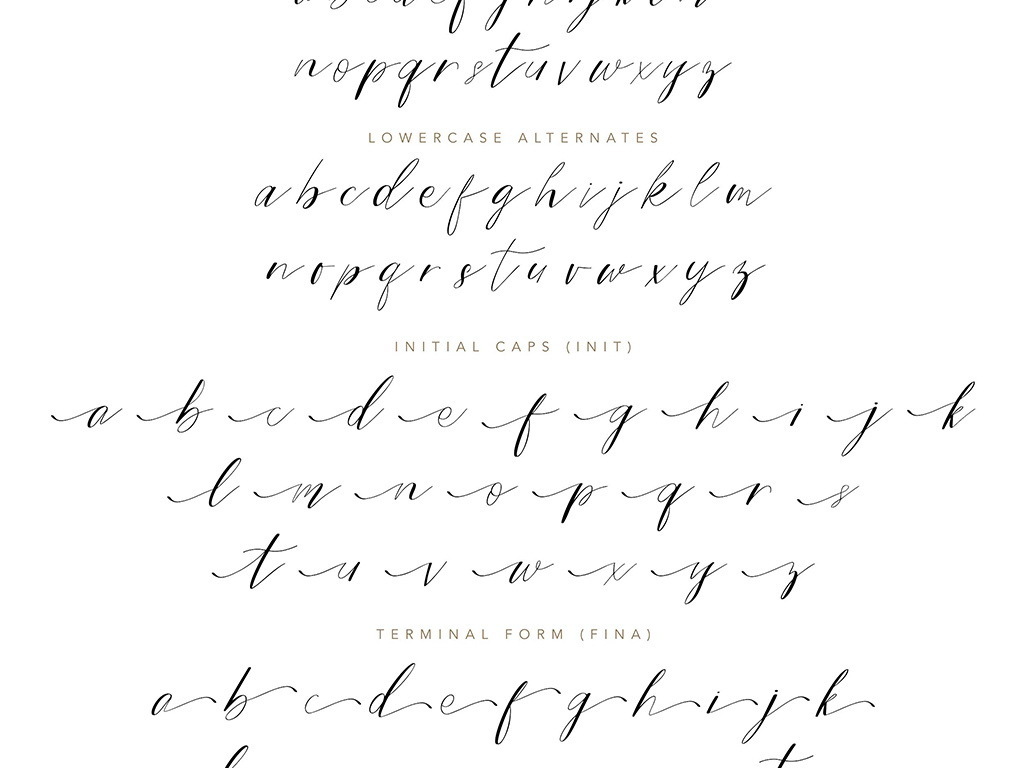 a b c d e f g h i j k l m
n o p q r s t u v w x y z
LOWERCASE ALTERNATES
a b c d e f g h i j k l m
n o p q r s t u v w x y z
INITIAL CAPS (INIT)
a b c d e f g h i j k
l m n o p q r s
t u v w x y z
TERMINAL FORM (FINA)
a b c d e f g h i j k